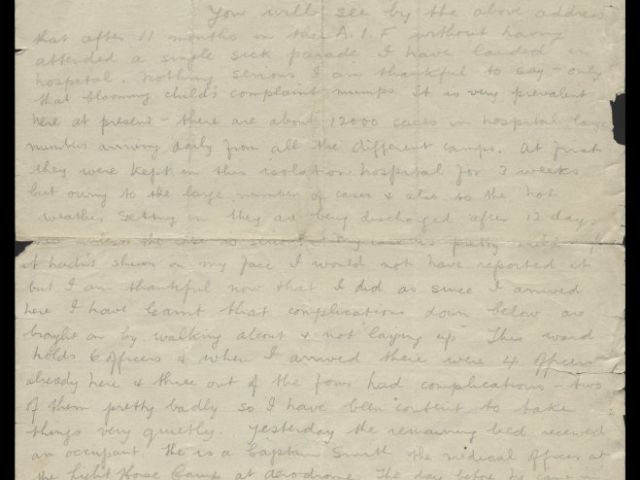 You will see by the above address
that after 11 months in the A.I.F without having
attended a single sick parade I have landed in
hospital. Nothing serious I am thankful to say - only
that blooming child's complaint mumps. It is very prevalent
here at present - there are about 12000 cases in hospital large
numbers arriving daily from all the different camps. At first
they were kept in this isolation hospital for 3 weeks
but owing to the large number of cases & also to the hot
weather setting in they are being discharged after 12 days
unless the case is serious. My case is pretty mild & if
it hadn't shewn on my face I would not have reported it
but I am thankful now that I did as since I arrived
here I have learnt that complications down below are
brought on by walking about & not laying up. This ward
holds 6 officers & when I arrived there were 4 officers
already here & three out of the four had complications - two
of them pretty badly so I have been content to take
things very quietly. Yesterday the remaining bed received
an occupant. He is a Captain Smith the medical officer at
the Light Horse Camp at aerodrome. The day before he came in